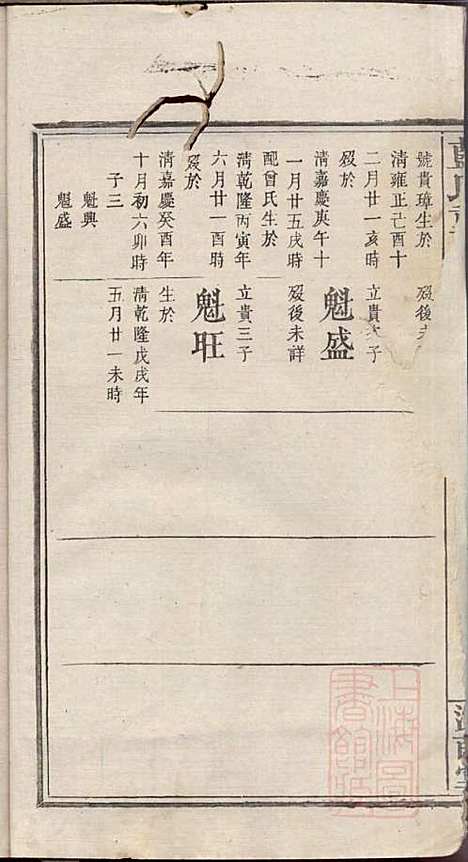 號貴璋生於
清雍正己酉十
二月廿一亥時
殁於
清嘉慶庚午十
一月廿五戌時
配曾氏生於
清乾隆丙寅年
六月廿一酉時
殁於
清嘉慶癸酉年
十月初六卯時
子三
魁興
魁盛
殁後未
立貴 子
魁盛
殁後未詳
立貴三子
魁旺
生於
清乾隆戊戌年
五月廿一未時
上海圖書館藏